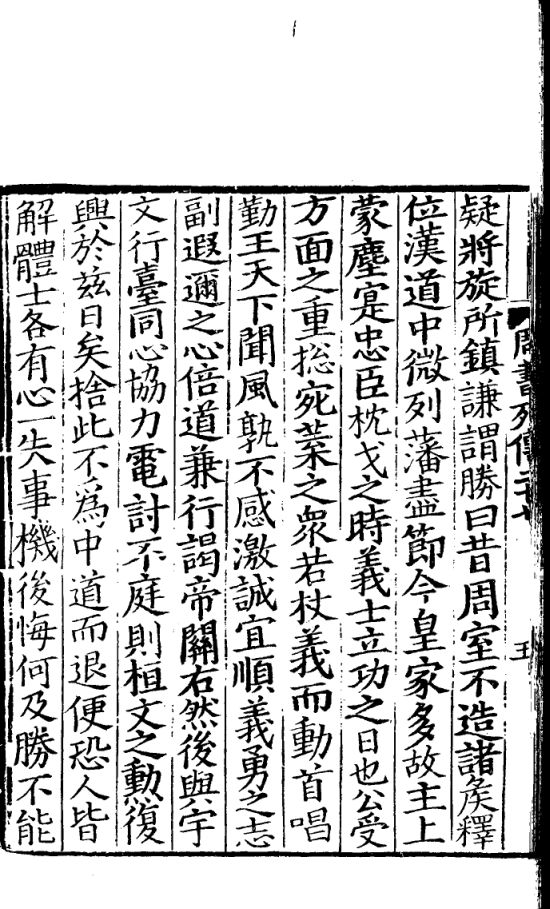 疑將旋所鎮謙謂勝曰昔周室不造諸矦釋
位漢道中微列藩盡節今皇家多故主上
蒙塵寔忠臣枕戈之時義士立功之日也公受
方面之重捴宛葉之衆若杖義而動首唱
勤王天下聞風孰不感激誠宜順義勇之志
副遐邇之心倍道兼行謁帝關右然後與宇
文行臺同心協力電討不庭則桓文之勲復
興於兹日矣捨此不為中道而退便恐人皆
解體士各有心一失事機後悔何及勝不能
周書列傳二十七
五